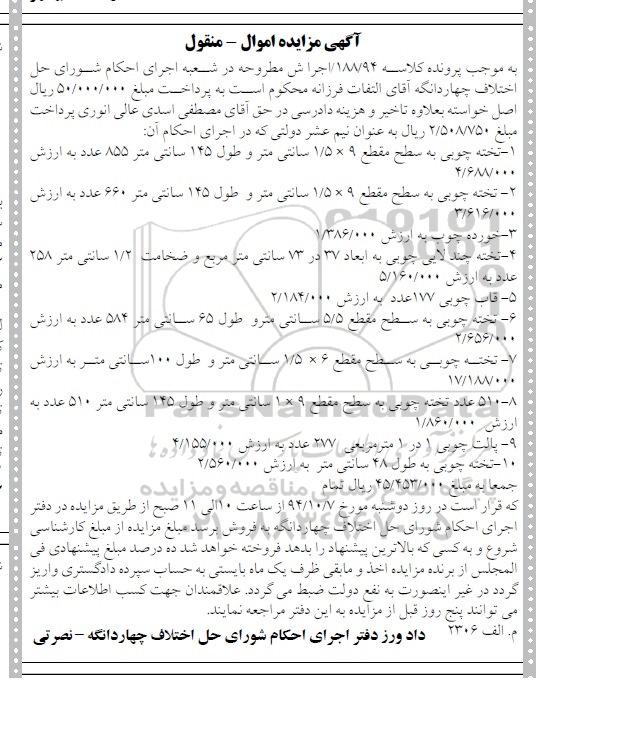 آگهی مزایده اموال - منقول
به موجب پرونده کلاسه ۱۸۸/۹۴/اجرا ش مطروحه در شعبه اجرای احکام شورای حل
اختلاف چهاردانگه آقای التفات فرزانه محکوم است به پرداخت مبلغ ۵۰/۰۰۰/۰۰۰ ریال
اصل خواسته بعلاوه تاخیر و هزینه دادرسی در حق آقای مصطفی اسدی عالی انوری پرداخت
مبلغ ۲/۵۰۸/۷۵۰ ریال به عنوان نیم عشر دولتی که در اجرای احکام آن:
۱-تخته چوبی به سطح مقطع ۹ × ۱/۵ سانتی متر و طول ۱۴۵ سانتی متر ۸۵۵ عدد به ارزش
۴/۶۸۸/۰۰۰
۲- تخته چوبی به سطح مقطع ۹ × ۱/۵ سانتی متر و طول ۱۴۵ سانتی متر ۶۶۰ عدد به ارزش
۳/۶۱۶/۰۰۰
۳-خورده چوب به ارزش ۱/۳۸۶/۰۰۰
۴-تخته چند لایی چوبی به ابعاد ۳۷ در ۷۳ سانتی متر مربع و ضخامت ۱/۲ سانتی متر ۲۵۸
عدد به ارزش ۵/۱۶۰/۰۰۰
۵- قاب چوبی ۱۷۷عدد به ارزش ۲/۱۸۴/۰۰۰
۶- تخته چوبی به سطح مقطع ۵/۵ سانتی مترو طول ۶۵ سانتی متر ۵۸۴ عدد به ارزش
۲/۶۵۶/۰۰۰
۷- تخته چوبی به سطح مقطع ۶ × ۱/۵ سانتی متر و طول ۱۰۰سانتی متر به ارزش
۱۷/۱۸۸/۰۰۰
۸-۵۱۰ عدد تخته چوبی به سطح مقطع ۹ × ۱ سانتی متر و طول ۱۴۵ سانتی متر ۵۱۰ عدد به
ارزش ۱/۸۶۰/۰۰۰
۹- پالت چوبی ۱ در ۱ مترمربعی ۲۷۷ عدد به ارزش ۴/۱۵۵/۰۰۰
۱۰-تخته چوبی به طول ۴۸ سانتی متر به ارزش ۲/۵۶۰/۰۰۰
جمعا به مبلغ ۴۵/۴۵۳/۰۰۰ ریال تمام
که قرار است در روز دوشنبه مورخ ۹۴/۱۰/۷ از ساعت ۱۰الی ۱۱ صبح از طریق مزایده در دفتر
اجرای احکام شورای حل اختلاف چهاردانگه به فروش برسد مبلغ مزایده از مبلغ کارشناسی
شروع و به کسی که بالاترین پیشنهاد را بدهد فروخته خواهد شد ده درصد مبلغ پیشنهادی فی
المجلس از برنده مزایده اخذ و مابقی ظرف یک ماه بایستی به حساب سپرده دادگستری واریز
گردد در غیر اینصورت به نفع دولت ضبط می گردد. علاقمندان جهت کسب اطلاعات بیشتر
می توانند پنج روز قبل از مزایده به این دفتر مراجعه نمایند.
م. الف ۲۳۰۶ داد ورز دفتر اجرای احکام شورای حل اختلاف چهاردانگه - نصرتی
ParsNamadData